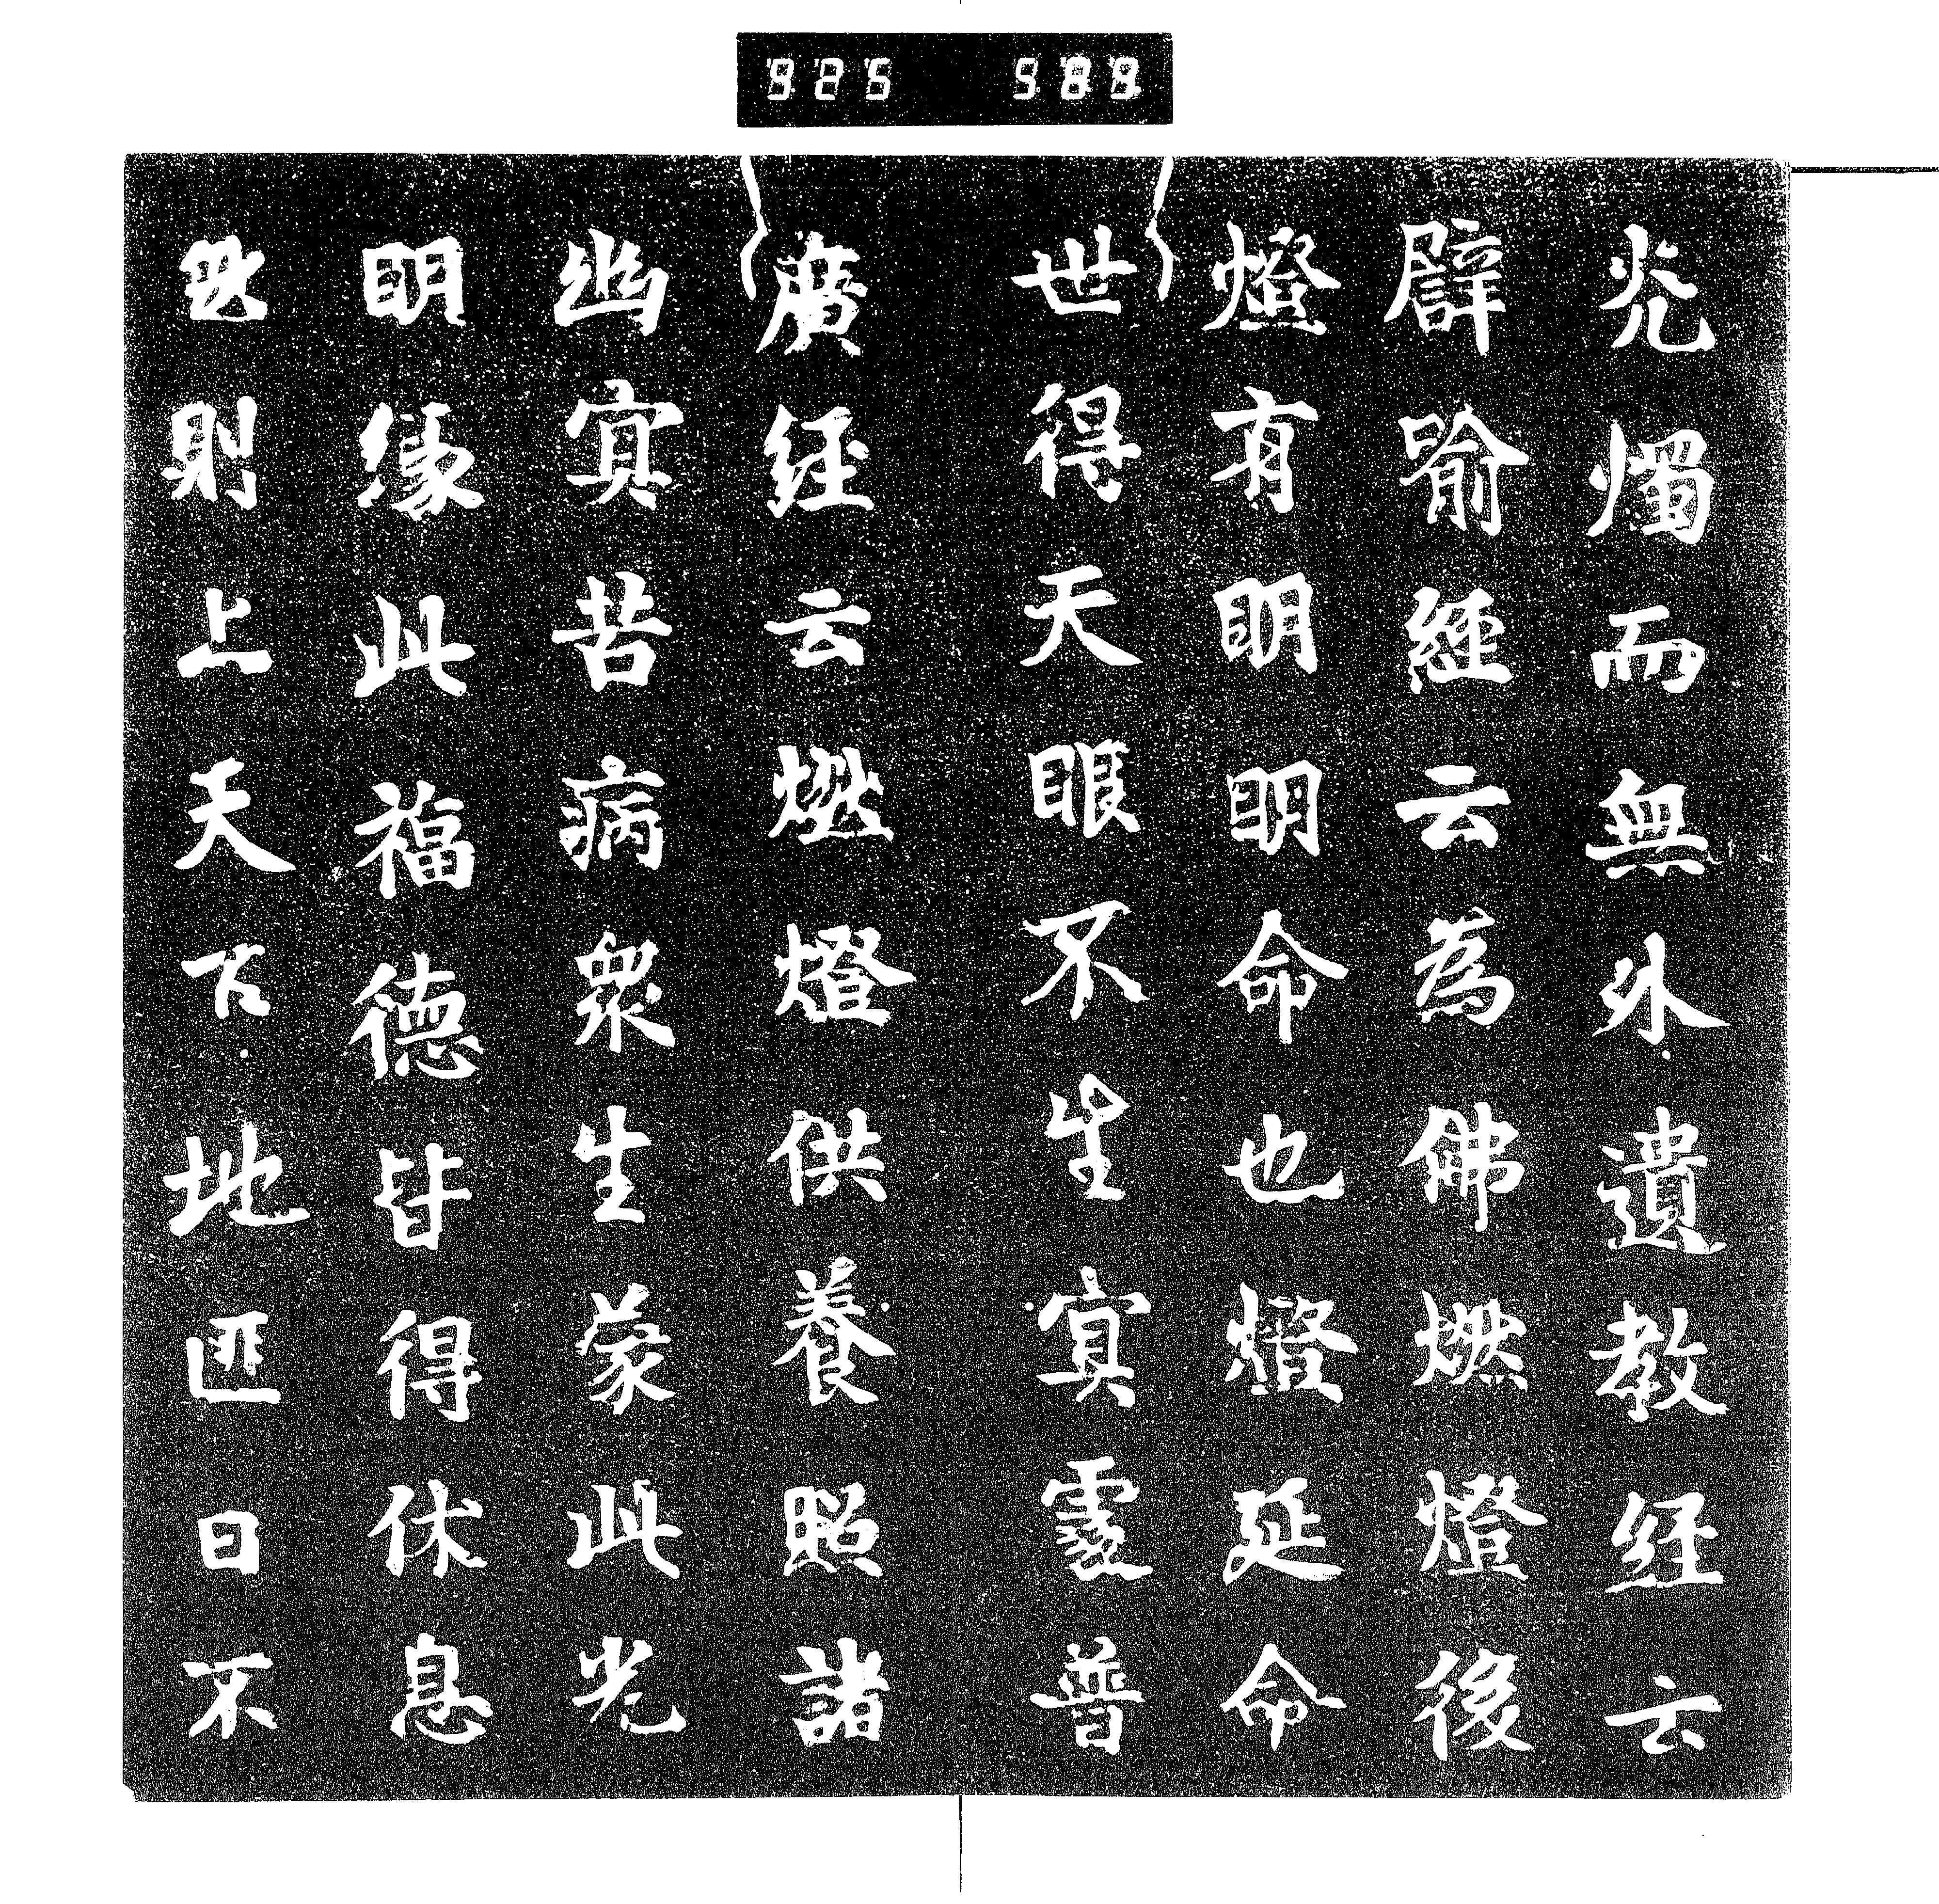 925 589
光燭而無外遺教経云
譬喻經云為佛燃燈後
燈有明明命也燈延命
世得天眼不生冥處普
廣経云燃燈供養照諸
幽冥苦病衆生蒙此光
明縁此福德皆得休息
然則上天下地匪日不